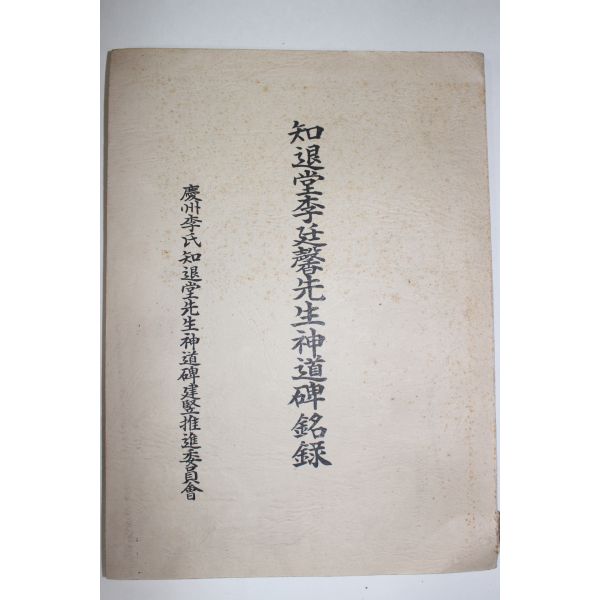 知退堂李廷馨先生神道碑銘錄
慶州李氏知退堂先生神道碑建竪推進委員會